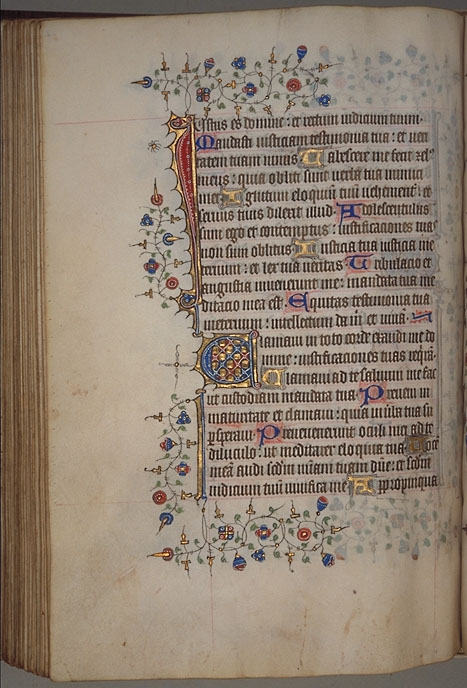 Iustus es domine : et rectum iudicium tuum.
Mandasti iusticiam testimonia tua : et veri
tatem tuam nimis. Tabescere me fecit zel'
meus : quia obliti sunt verba tua inimici
mei. Ignitum eloquiū tuū vehement' : et
servus tuus dilexit illud. Adolescentulus
sum ego et contemptus : iustificationes tuas
non sum oblitus. Iusticia tua iusticia in e
ternum : et lex tua veritas. Tribulacio et
angustia invenerunt me : mandata tua me
ditacio mea est. Equitas testimonia tua
in eternum : intellectum da m̄ et vivā.
Clamavi in toto corde exaudi me do
mine : iustificaciones tuas reqirā.
Clamavi ad te salvum me fac
ut custodiam mandata tua. Preveni in
maturitate et clamavi : quia in v̄ba tua su
psperavi. Prevenerunt oculi mei ad te
diluculo : ut meditarer eloquia tua. Vocē
meā audi scdm miam tuam dn̄e : et scdm
iudicium tuū vivifica me. Appropinqua